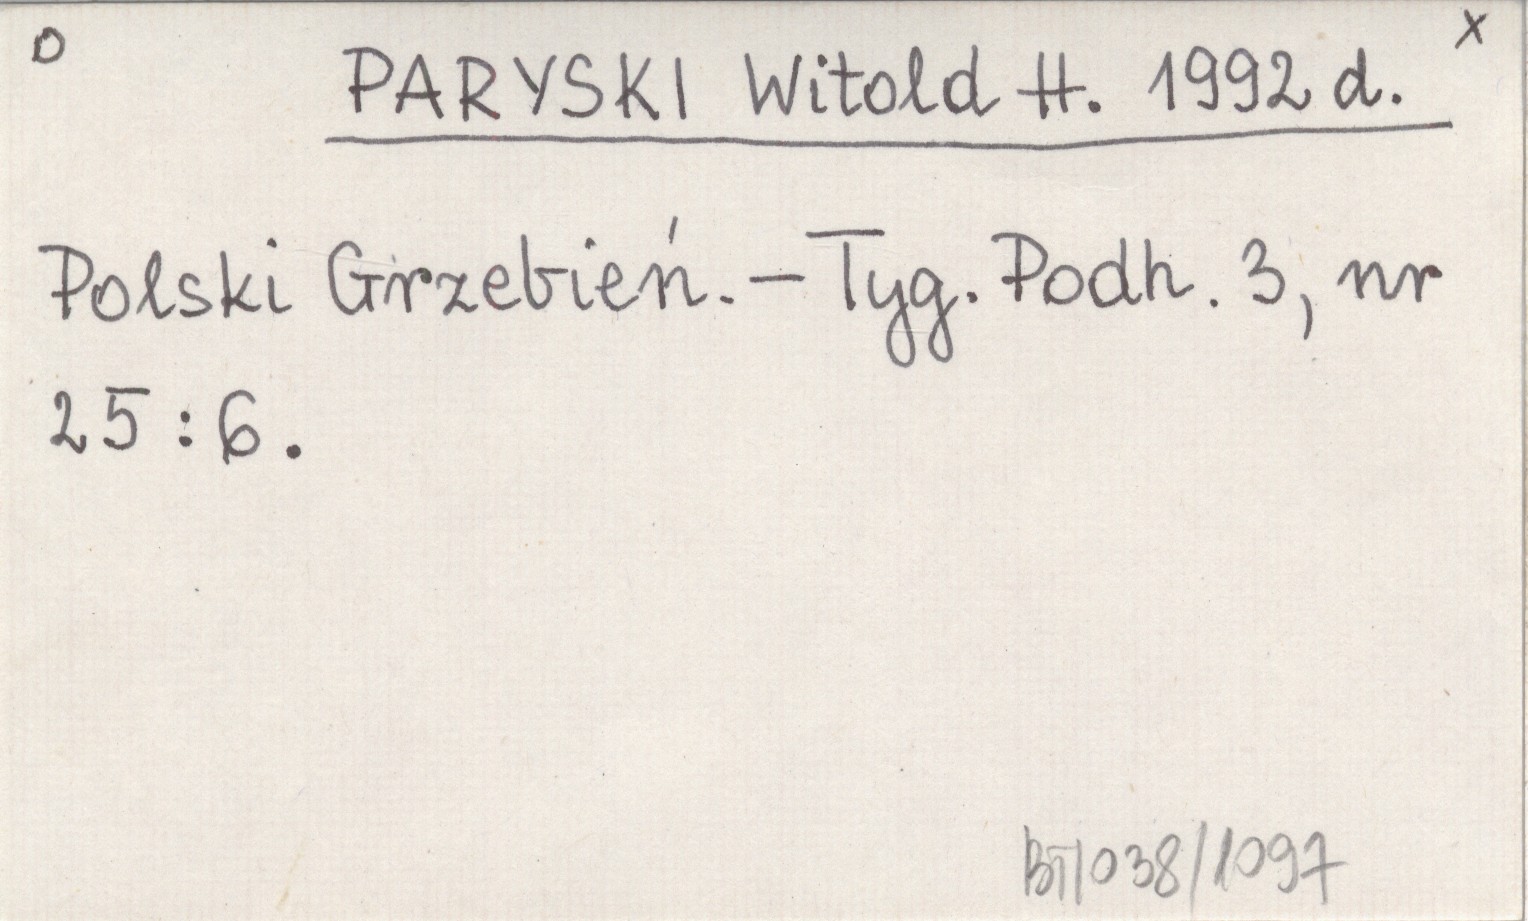 O
X
PARYSKI Witold H. 1992 d.
Polski Grzebień. – Tyg. Podh. 3, nr
25 : 6.
BT/038/1097